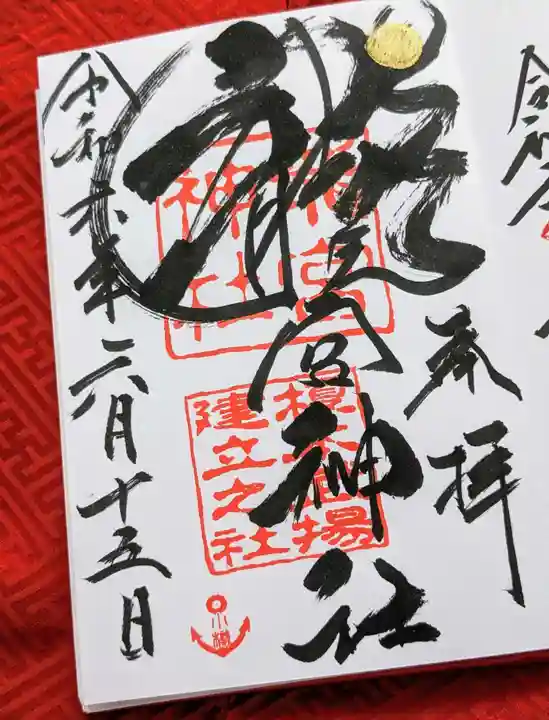 奉拝
龍宮神社
龍宮神社
榎本武揚建立之社
小樽
令和六年六月十五日